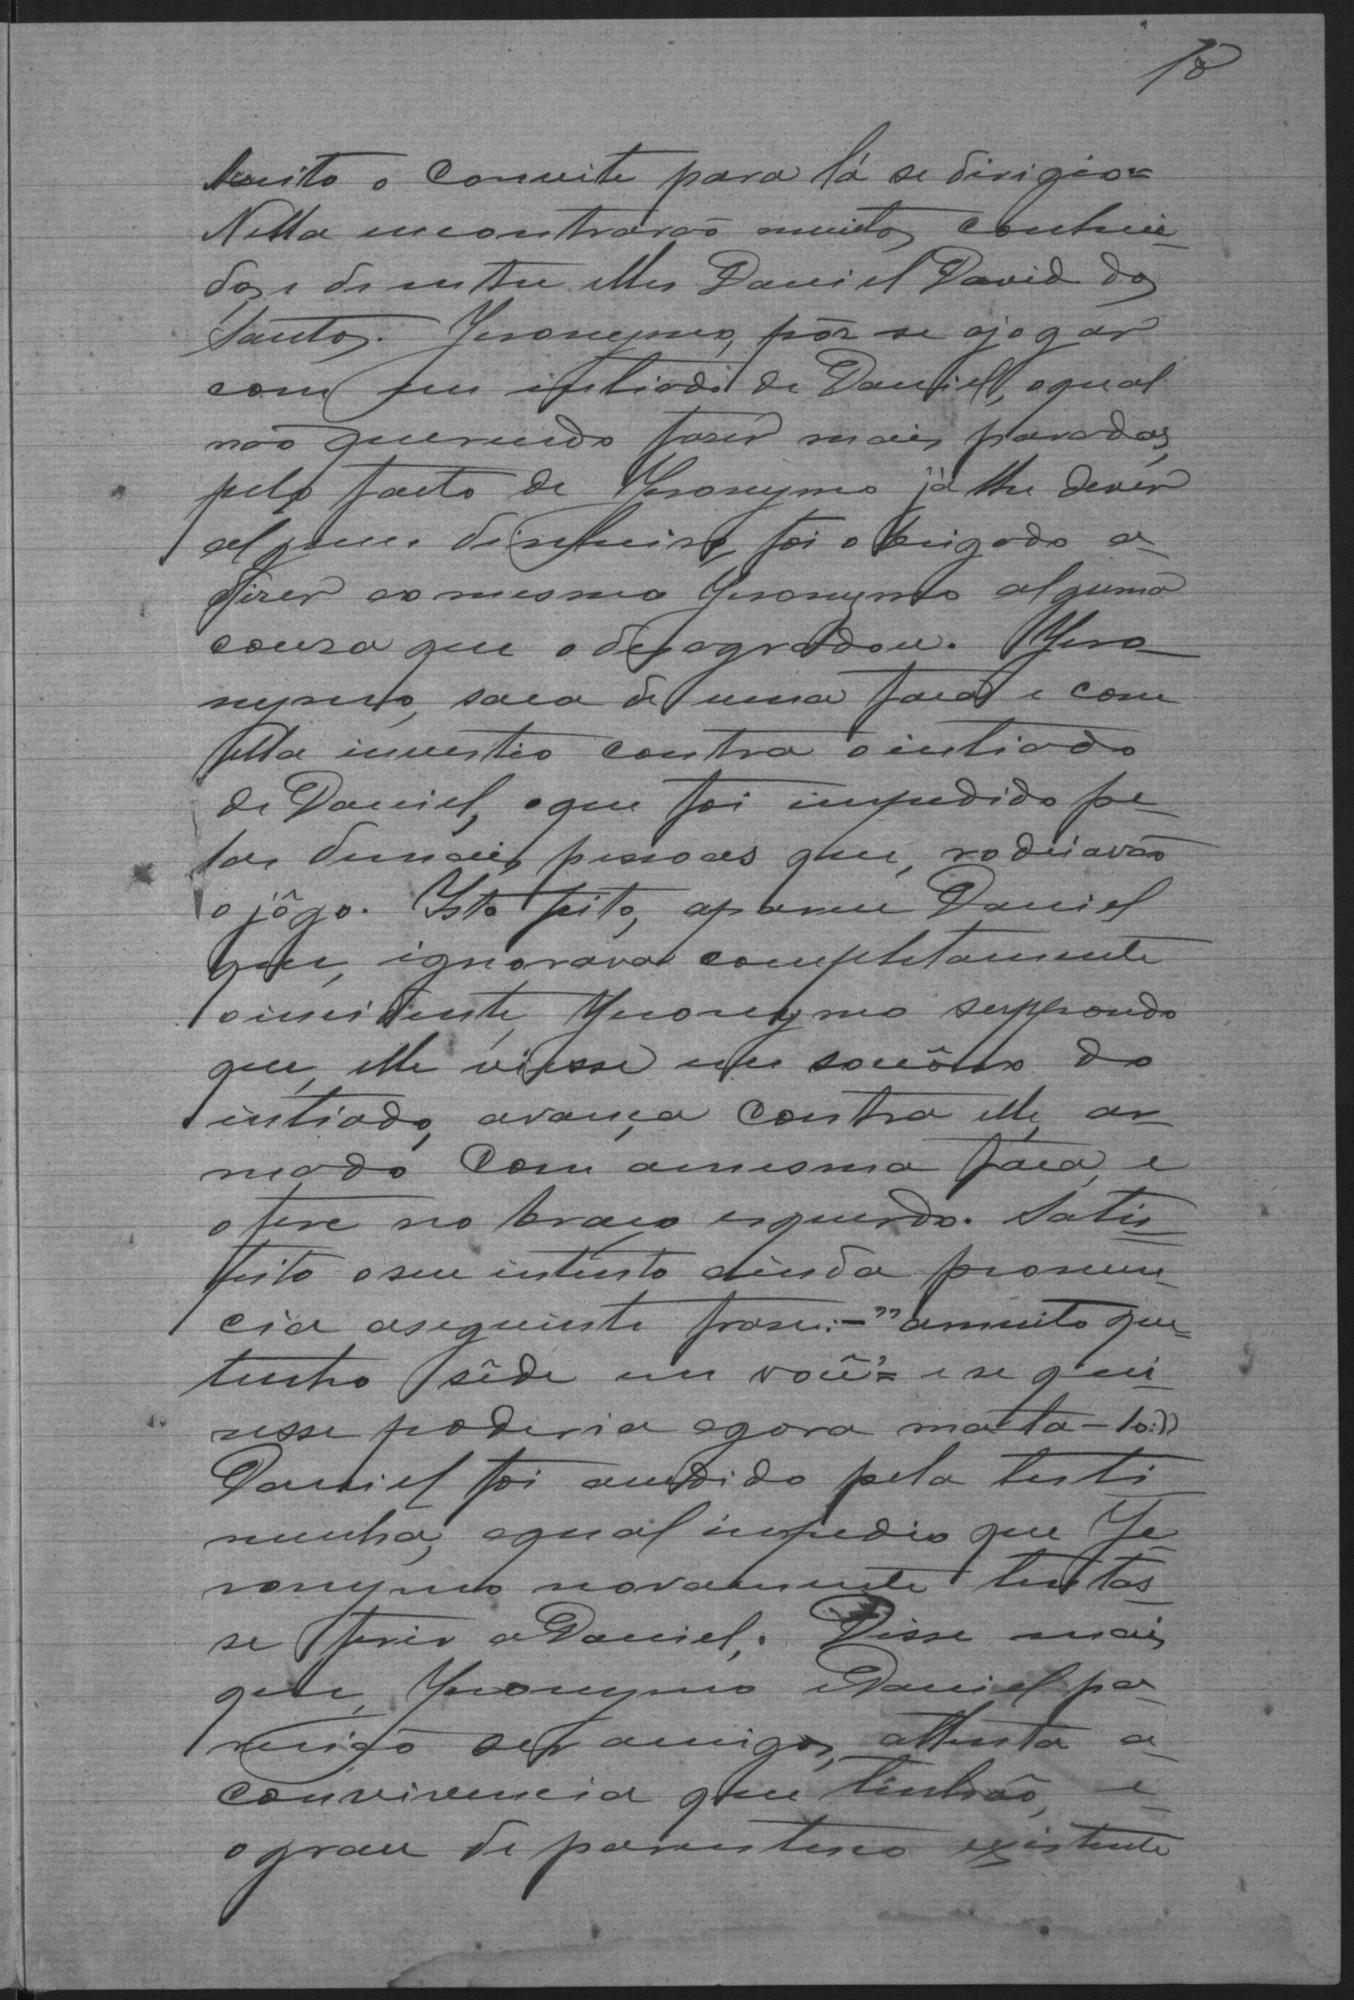 18
Acceito o convite para lá se dirigio=
Nella encontrarão muitos conheci-
dos e dentre elles Daniel David dos
Santos. Jeronymo, pôz se a jogar
com um intiado de Daniel, o qual
não querendo fazer mais paradas,
pelo facto de Jeronymo já lhe devêr
algum dinheiro, foi obrigado a
dizer ao mesmo Jeronymo alguma
couza que o desagradou. Jero-
nymo, saca de uma faca e com
ella investio contra o intiado
de Daniel, o que foi impedido pe-
las demais pessoas que, rodeiavão
o jôgo. Isto feito, aparece Daniel
que, ignorava completamente
o incidente, Jeronymo suppondo
que, elle viesse em socôrro do
intiado, avança contra elle, ar-
mado com a mesma faca, e
o fere no braço esquerdo. Satis-
feito o seu intento ainda pronun-
cia a seguinte frase:-"a muito que
tenho sêde em você"= e se qui-
sesse poderia agora mata-lo:"
Daniel foi acudido pela testi
munha, a qual impedio que Je-
ronymo novamente tentas-
se ferir a Daniel,. Disse mais
que, Jeronymo e Daniel pa-
recião ser amigos, attenta a
convivencia que tinhão, e
o grau de parentesco existente